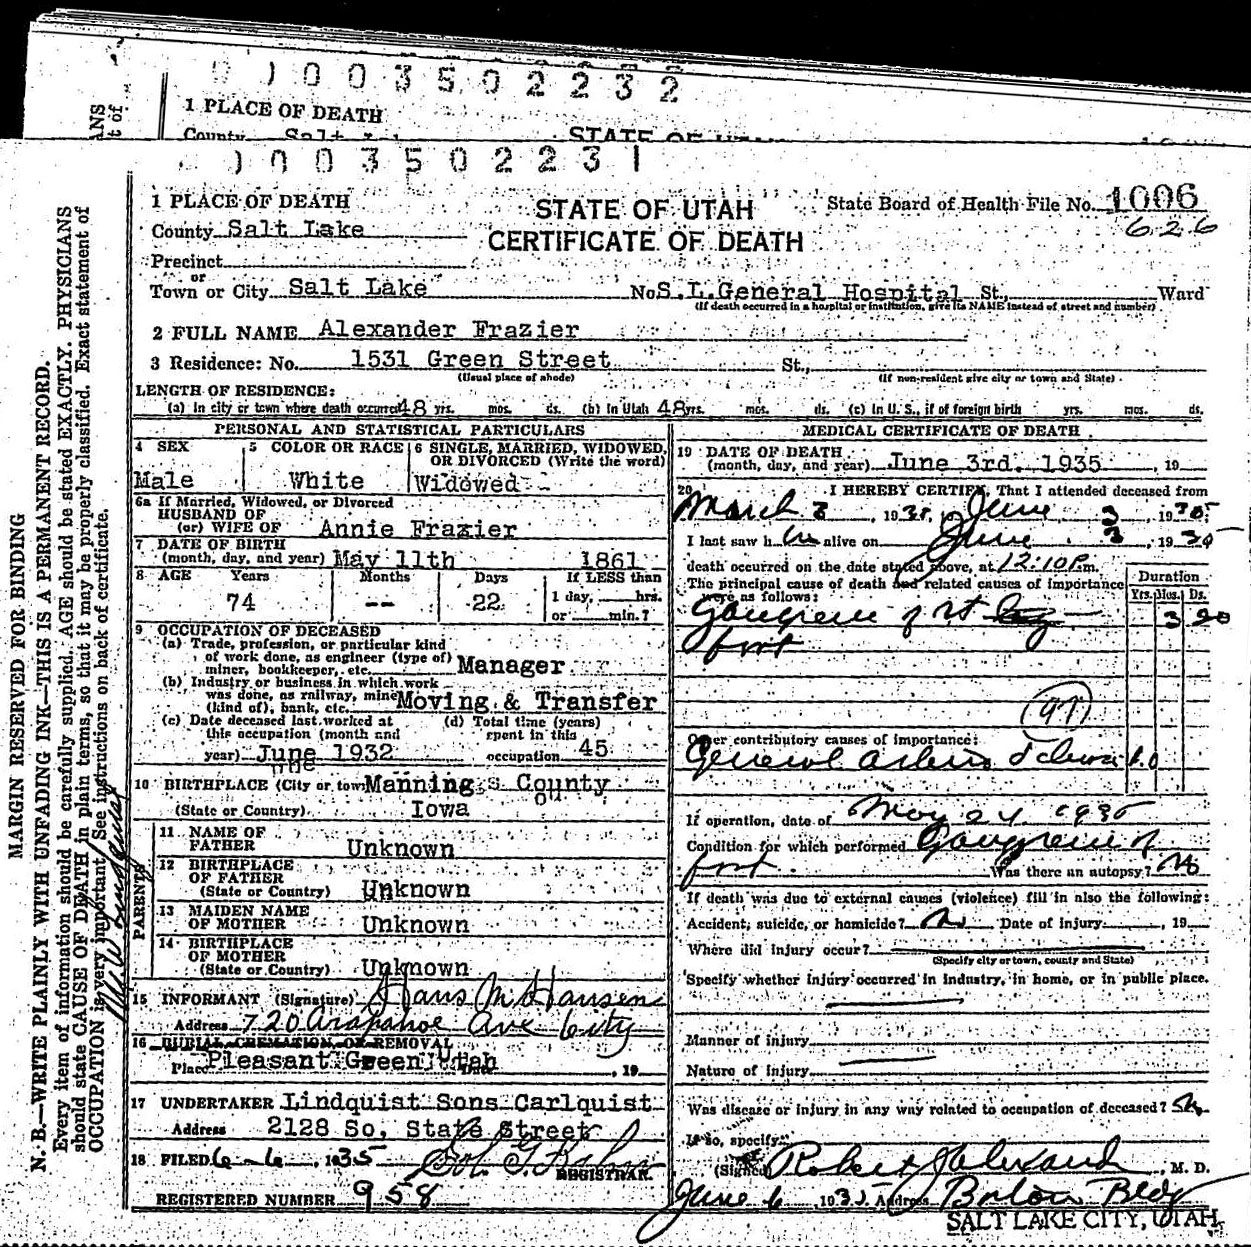 0003502232
1 PLACE OF DEATH
County Salt
STATE OF UTAH
0003502231
1 PLACE OF DEATH
STATE OF UTAH
State Board of Health File No. 1006
County Salt Lake
CERTIFICATE OF DEATH
626
Precinct
or
Town or City Salt Lake No. S.L.General Hospital St., Ward
(If death occurred in a hospital or institution, give its NAME instead of street and number)
2 FULL NAME Alexander Frazier
3 Residence: No. 1531 Green Street St.,
(Usual place of abode) (If non-resident give city or town and State)
LENGTH OF RESIDENCE:
(a) In city or town where death occurred 48 yrs. mos. ds. (b) In Utah 48 yrs. mos. ds. (c) In U. S., if of foreign birth yrs. mos. ds.
PERSONAL AND STATISTICAL PARTICULARS
4 SEX 5 COLOR OR RACE 6 SINGLE, MARRIED, WIDOWED, OR DIVORCED (Write the word)
Male White Widowed
6a If Married, Widowed, or Divorced
HUSBAND OF
(or) WIFE OF Annie Frazier
7 DATE OF BIRTH
(month, day, and year) May 11th 1861
8 AGE Years Months Days If LESS than
74 -- 22 1 day, hrs.
or min.?
9 OCCUPATION OF DECEASED
(a) Trade, profession, or particular kind
of work done, as engineer (type of)
miner, bookkeeper, etc. Manager
(b) Industry or business in which work
was done, as railway, mine
(kind of), bank, etc. Moving & Transfer
(c) Date deceased last worked at
this occupation (month and
year) June 1932
(d) Total time (years)
spent in this
occupation 45
10 BIRTHPLACE (City or town) Mannings County
(State or Country) Iowa
PARENTS
11 NAME OF
FATHER Unknown
12 BIRTHPLACE
OF FATHER
(State or Country) Unknown
13 MAIDEN NAME
OF MOTHER Unknown
14 BIRTHPLACE
OF MOTHER
(State or Country) Unknown
15 INFORMANT (Signature) Hans M Hansen
Address 720 Arapahoe Ave City
16 BURIAL, CREMATION, OR REMOVAL
Place Pleasant Green Utah , 19
17 UNDERTAKER Lindquist Sons Carlquist
Address 2128 So, State Street
18 FILED 6-6, 1935
REGISTRAR.
REGISTERED NUMBER 958
MEDICAL CERTIFICATE OF DEATH
19 DATE OF DEATH
(month, day, and year) June 3rd. 1935 , 19
20 I HEREBY CERTIFY, That I attended deceased from
March 3, 1935, June 3, 1935
I last saw him alive on June 3, 1935
death occurred on the date stated above, at 12:10 P.m.
The principal cause of death and related causes of importance
were as follows:
Duration
Yrs. Mos. Ds.
Gangrene of rt leg 3 20
foot
(97)
Other contributory causes of importance:
General Arterio Sclerosis
If operation, date of May 24 1935
Condition for which performed Gangrene of
foot. Was there an autopsy? No
If death was due to external causes (violence) fill in also the following:
Accident, suicide, or homicide? No Date of injury , 19
Where did injury occur?
(Specify city or town, county and State)
Specify whether injury occurred in industry, in home, or in public place.
Manner of injury
Nature of injury
Was disease or injury in any way related to occupation of deceased? No
If so, specify
(Signed) Robert J Alexander, M. D.
June 6, 1935 Address Boston Bldg
SALT LAKE CITY, UTAH
MARGIN RESERVED FOR BINDING
N. B.—WRITE PLAINLY WITH UNFADING INK—THIS IS A PERMANENT RECORD.
Every item of information should be carefully supplied. AGE should be stated EXACTLY. PHYSICIANS
should state CAUSE OF DEATH in plain terms, so that it may be properly classified. Exact statement of
OCCUPATION is very important. See instructions on back of certificate.